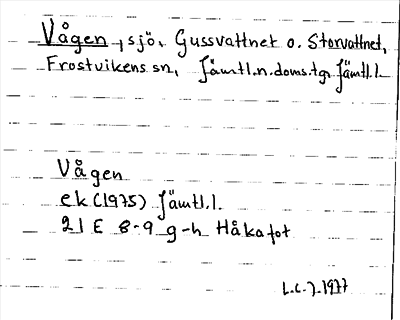 Vågen, sjö. Gussvattnet o. Storvattnet,
Frostvikens sn, Jämtl.n.doms.tg, Jämtl.l.
Vågen
ek (1975) Jämtl.l.
21 E 8-9 g-h Håkafot
L.C.J. 1977